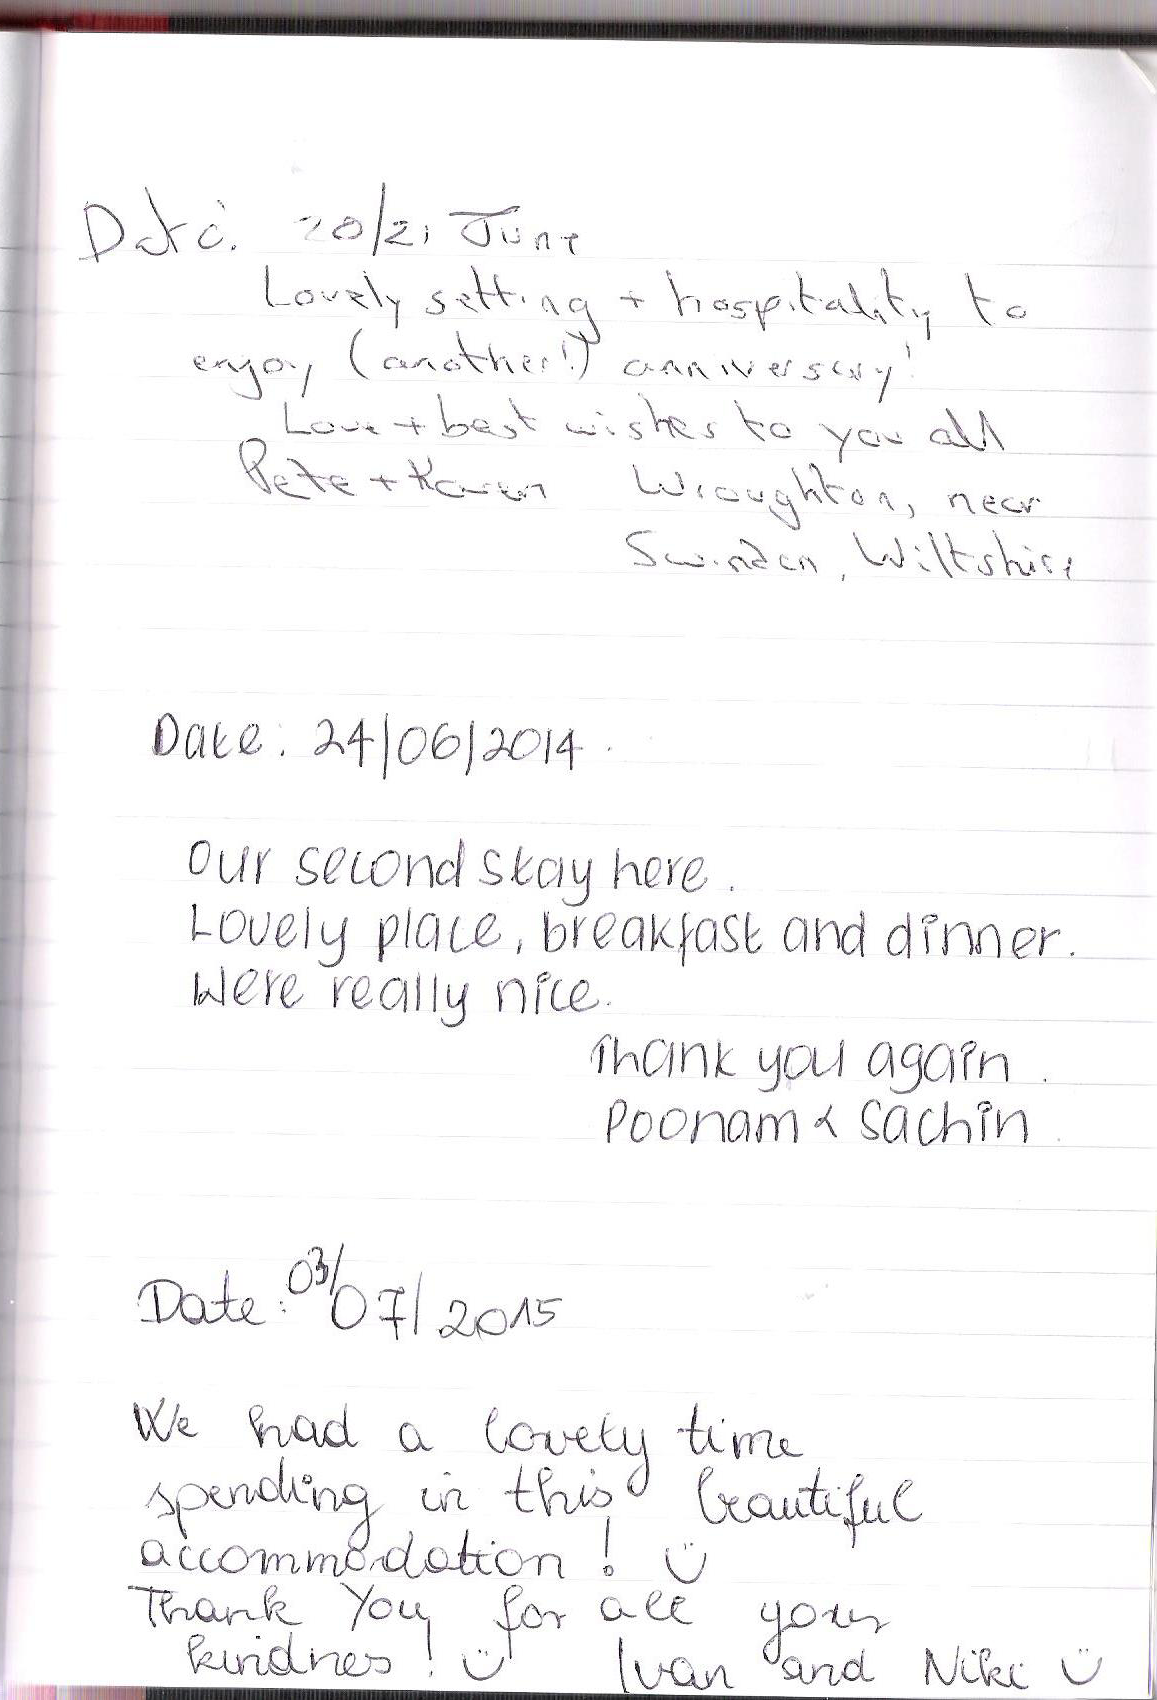 Date: 20/21 June
Lovely setting + hospitality to
enjoy (another!) anniversary!
Love + best wishes to you all
Pete + Karen Wroughton, near
Swindon, Wiltshire
Date: 24/06/2014.
Our second stay here.
Lovely place, breakfast and dinner.
Were really nice.
Thank you again.
Poonam & Sachin.
Date: 03/07/2015
We had a lovely time
spending in this beautiful
accommodation! :)
Thank You for all your
kindnes! :) Ivan and Niki :)